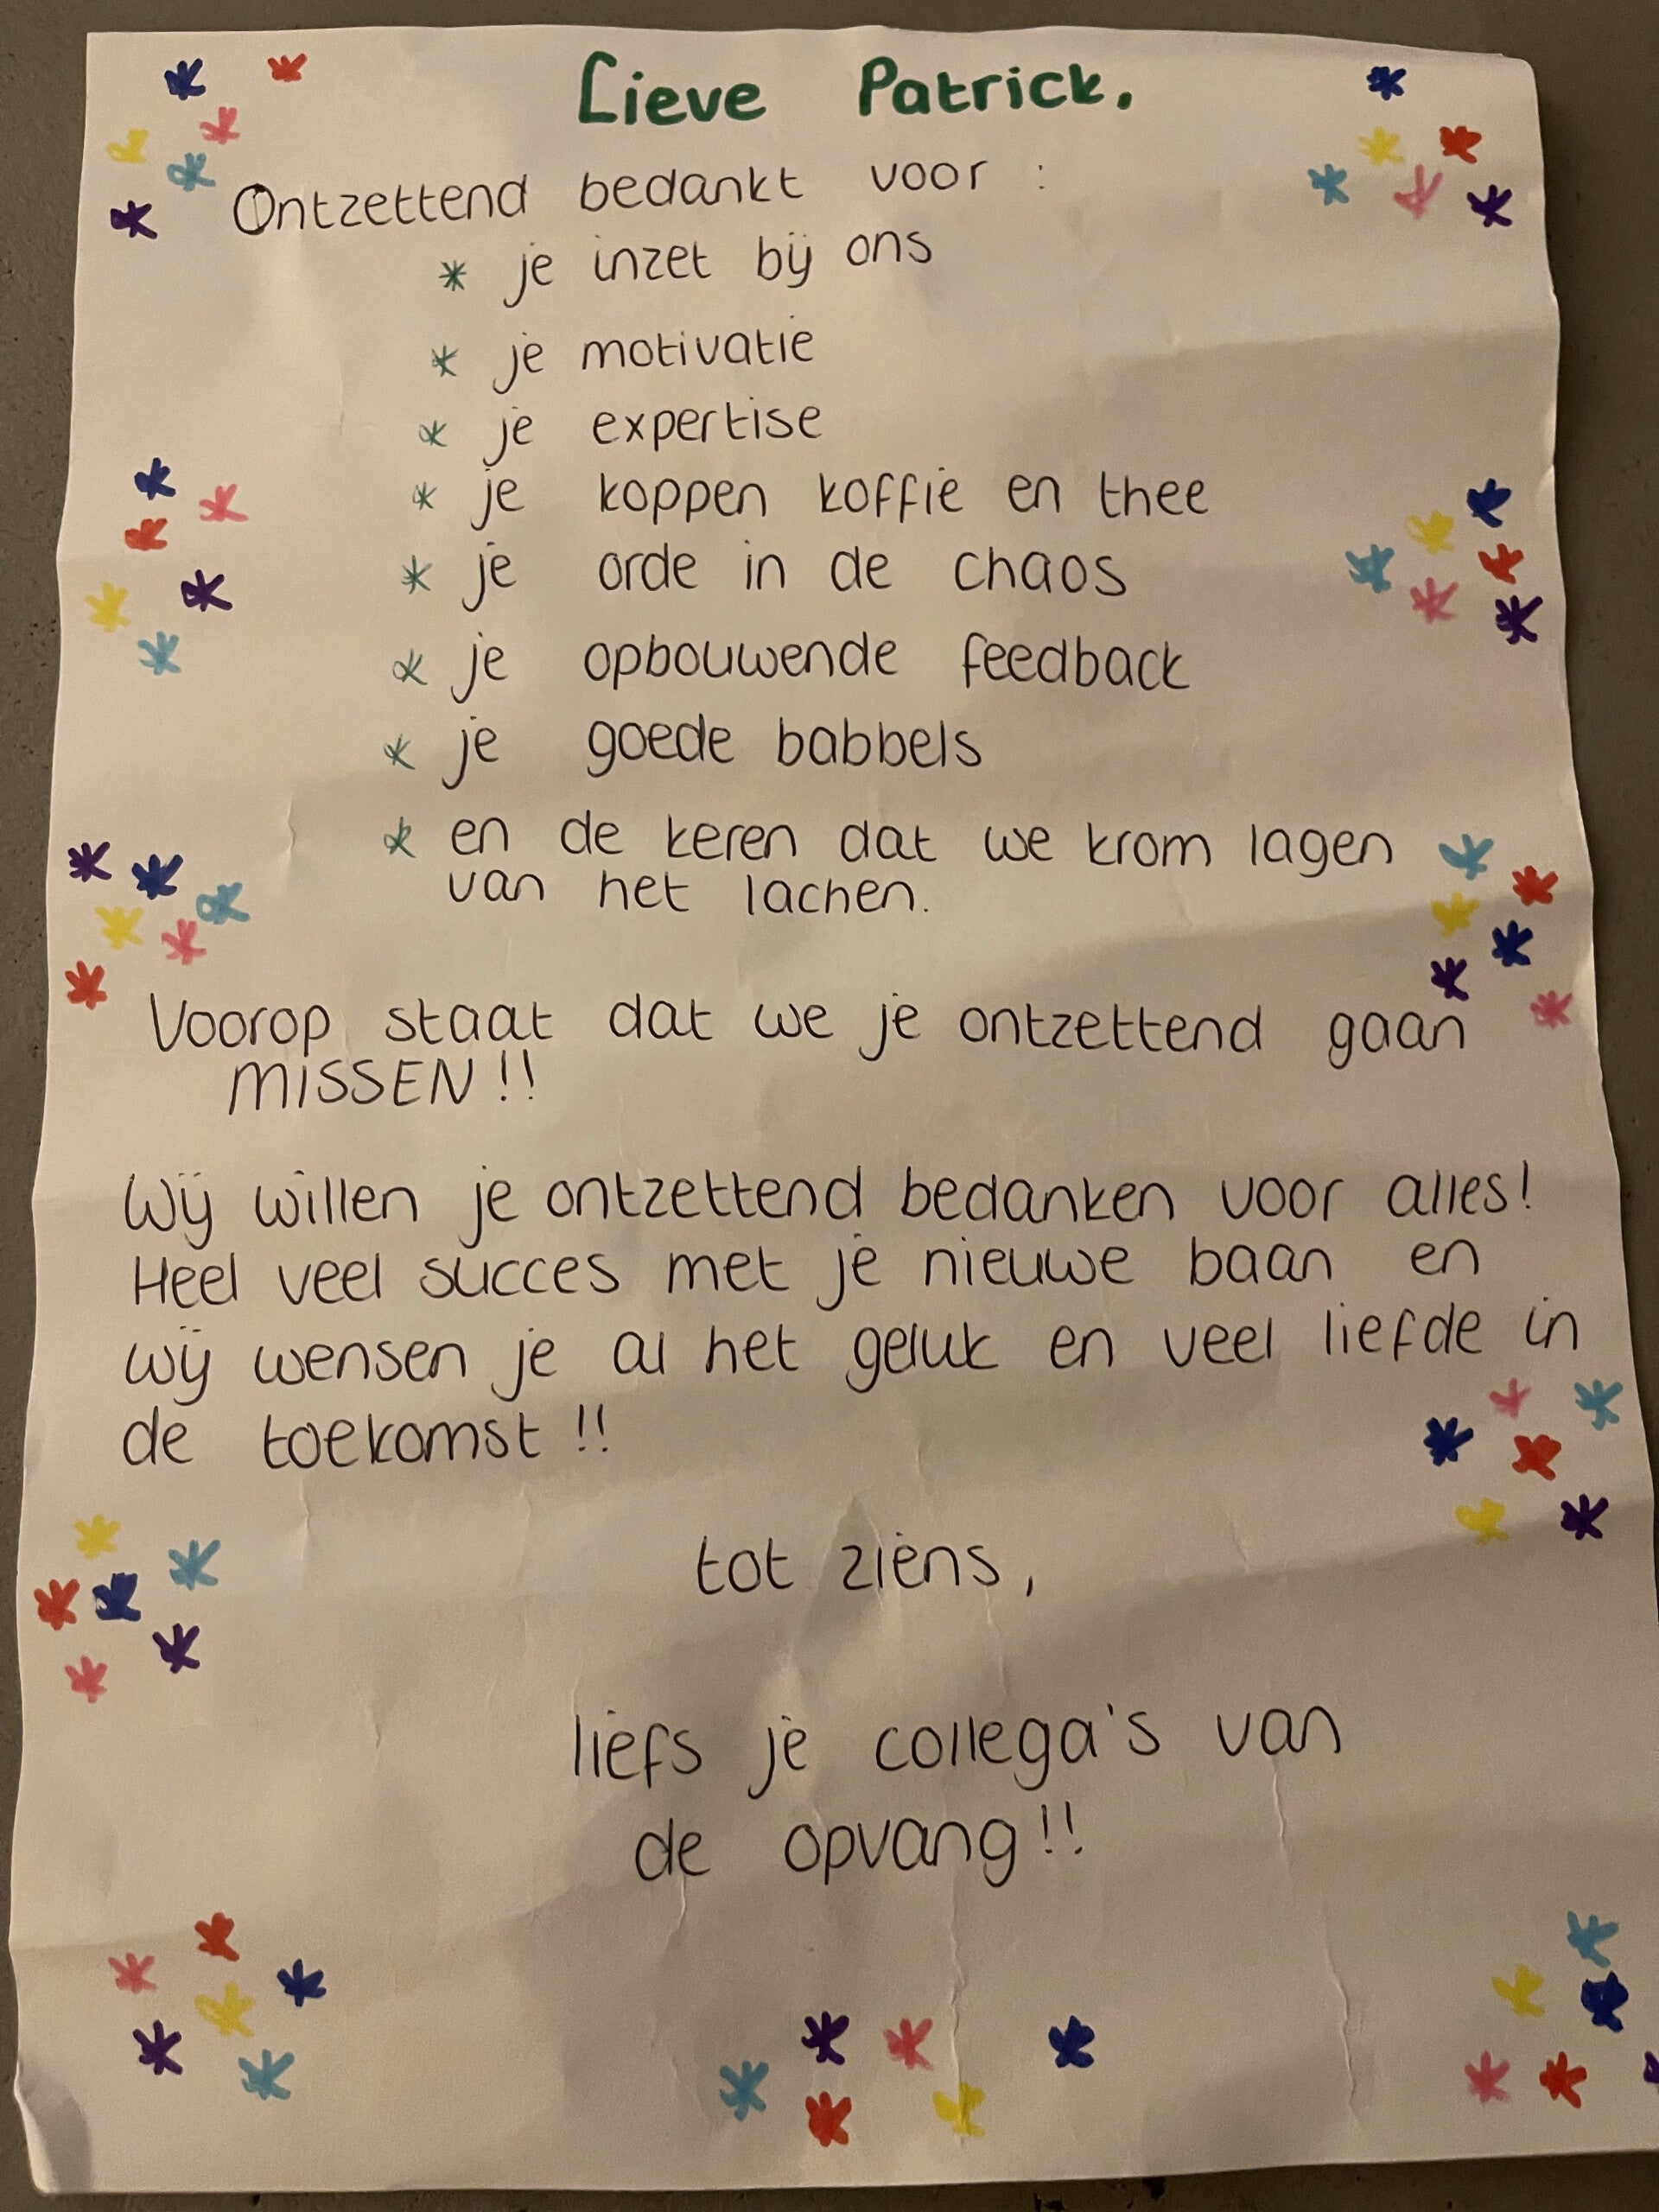 Lieve Patrick.
Ontzettend bedankt voor :
* je inzet bij ons
* je motivatie
* je expertise
* je koppen koffie en thee
* je orde in de chaos
* je opbouwende feedback
* je goede babbels
* en de keren dat we krom lagen
van het lachen.
Voorop staat dat we je ontzettend gaan
MISSEN!!
Wij willen je ontzettend bedanken voor alles!
Heel veel succes met je nieuwe baan en
wij wensen je al het geluk en veel liefde in
de toekomst!!
tot ziens,
liefs je collega's van
de opvang!!